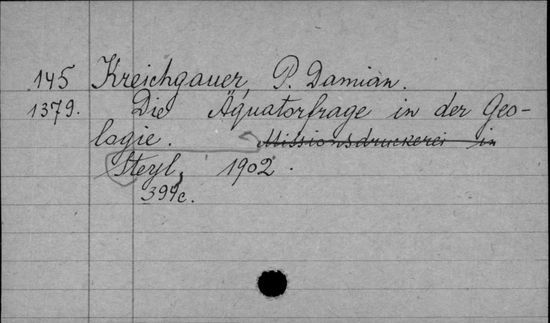 145 Kreichgauer, P. Damian.
1379. Die Äquatorfrage in der Geo-
logie. Missionsdruckerei in
Steyl, 1902.
394c.